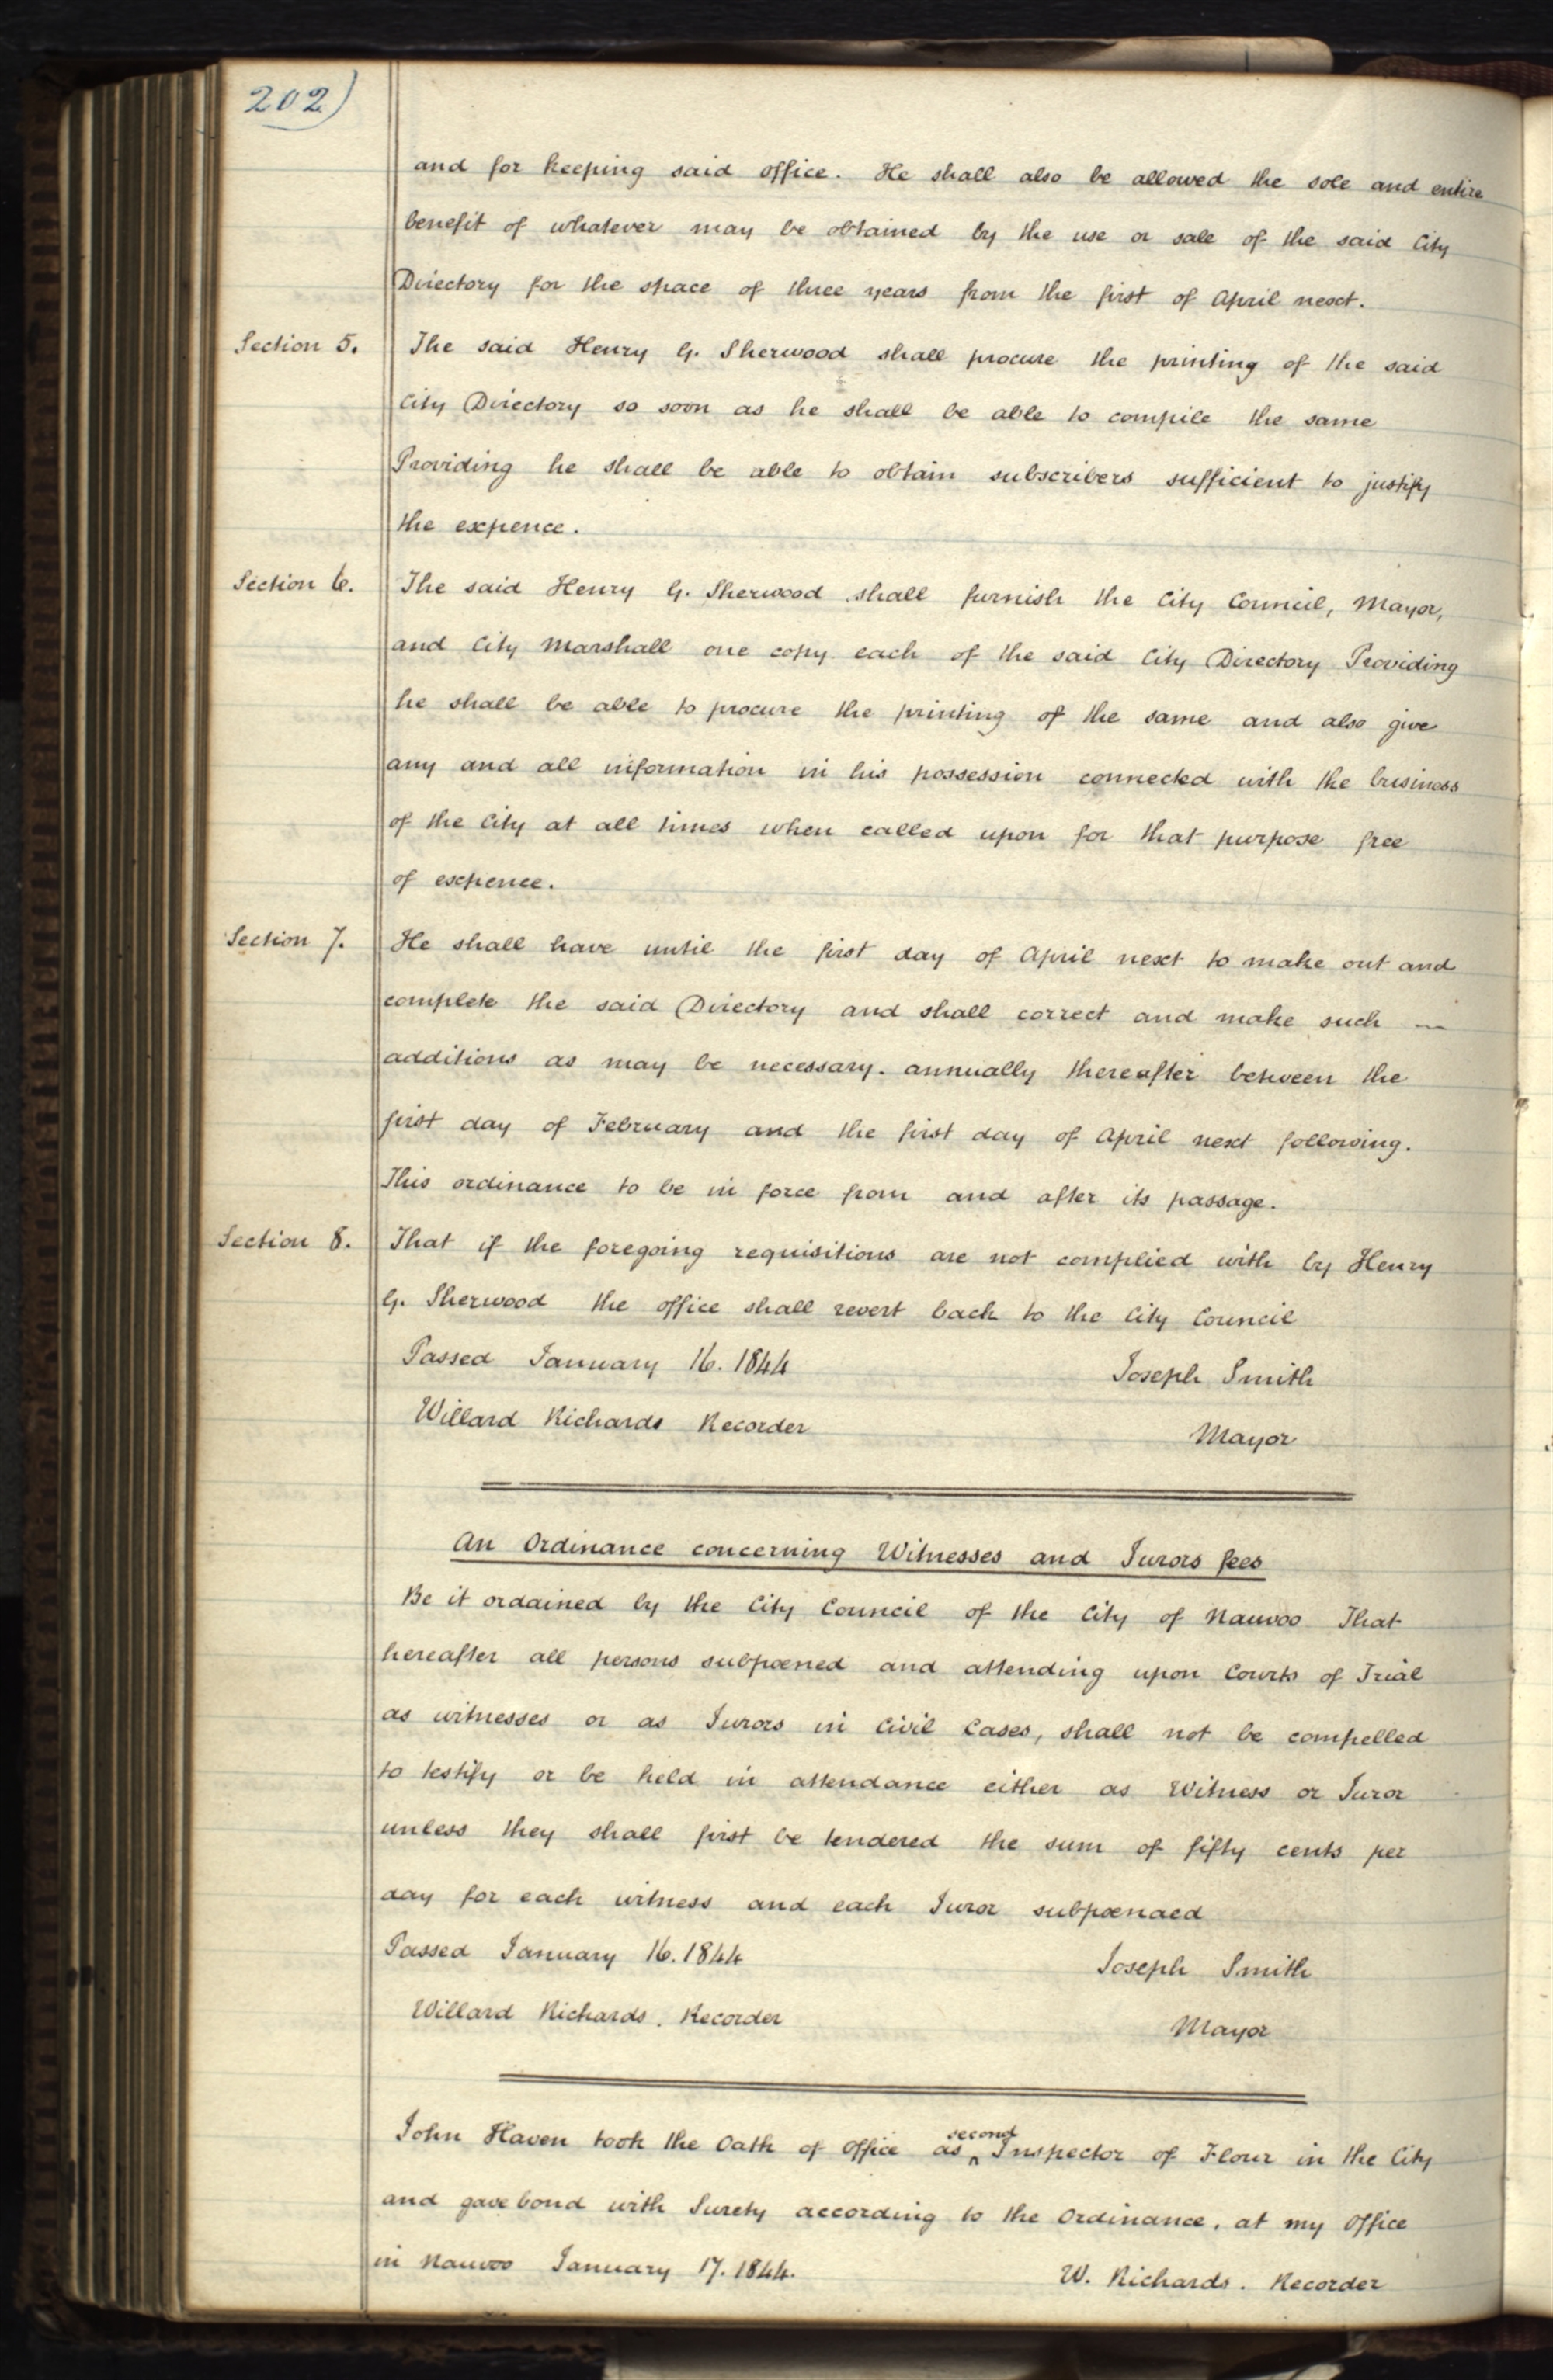 202)
and for keeping said office. He shall also be allowed the sole and entire
benefit of whatever may be obtained by the use or sale of the said City
Directory for the space of three years from the first of April next.
Section 5. The said Henry G. Sherwood shall procure the printing of the said
City Directory so soon as he shall be able to compile the same
Providing he shall be able to obtain subscribers sufficient to justify
the expence.
Section 6. The said Henry G. Sherwood shall furnish the City Council, Mayor,
and City Marshall one copy each of the said City Directory Providing
he shall be able to procure the printing of the same and also give
any and all information in his possession connected with the business
of the City at all times when called upon for that purpose free
of expence.
Section 7. He shall have until the first day of April next to make out and
complete the said Directory and shall correct and make such —
additions as may be necessary. annually thereafter between the
first day of February and the first day of April next following.
This ordinance to be in force from and after its passage.
Section 8. That if the foregoing requisitions are not complied with by Henry
G. Sherwood the office shall revert back to the City Council
Passed January 16. 1844 Joseph Smith
Willard Richards Recorder Mayor
An Ordinance concerning Witnesses and Jurors fees
Be it ordained by the City Council of the City of Nauvoo That
hereafter all persons subpœned and attending upon Courts of Trial
as witnesses or as Jurors in Civil Cases, shall not be compelled
to testify or be held in attendance either as Witness or Juror
unless they shall first be tendered the sum of fifty cents per
day for each witness and each Juror subpœnaed
Passed January 16. 1844 Joseph Smith
Willard Richards. Recorder Mayor
second
John Haven took the Oath of Office as ^ Inspector of Flour in the City
and gave bond with Surety according to the Ordinance, at my Office
in Nauvoo January 17. 1844. W. Richards. Recorder